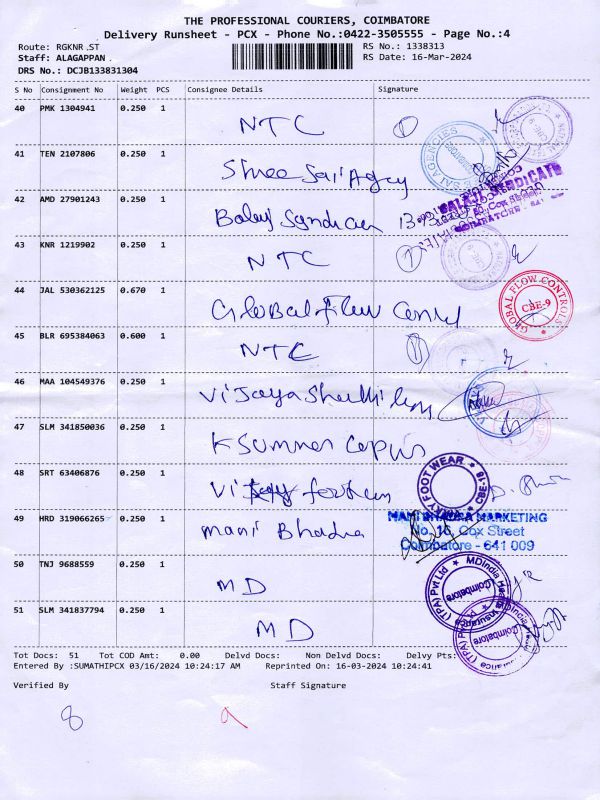 THE PROFESSIONAL COURIERS, COIMBATORE
Delivery Runsheet - PCX - Phone No.:0422-3505555 - Page No.:4
Route: RGKNR ST
RS No.: 1338313
Staff: ALAGAPPAN
RS Date: 16-Mar-2024
DRS No.: DCJB133831304
S No Consignment No Weight PCS Consignee Details Signature
40 PMK 1304941 0.250 1
NTC
41 TEN 2107806 0.250 1
Shree Sai Agcy
42 AMD 27901243 0.250 1
BALAJI SYNDICATE
43 KNR 1219902 0.250 1
NTC
44 JAL 530362125 0.670 1
Global Flow
GLOBAL FLOW CONTROLS
CBE-9
45 BLR 695384063 0.600 1
NTC
46 MAA 104549376 0.250 1
Vijaya
47 SLM 341850036 0.250 1
K Summer
48 SRT 63406876 0.250 1
FOOT WEAR
CBE-18
49 HRD 319066265 0.250 1
Mani Bhadra
MANI BHADRA MARKETING
No. 16, Cox Street
Coimbatore - 641 009
50 TNJ 9688559 0.250 1
MD
MDIndia Health Insurance (TPA) Pvt Ltd
Coimbatore
51 SLM 341837794 0.250 1
MD
Coimbatore
Tot Docs: 51 Tot COD Amt: 0.00 Delvd Docs: Non Delvd Docs: Delvy Pts:
Entered By :SUMATHIPCX 03/16/2024 10:24:17 AM Reprinted On: 16-03-2024 10:24:41
Verified By Staff Signature